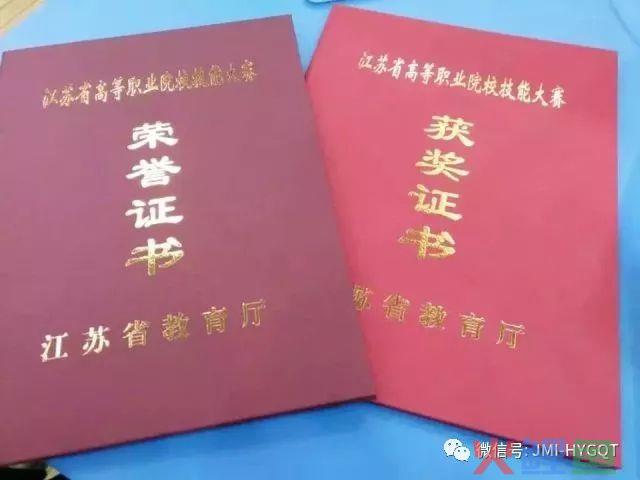 江苏省高等职业院校技能大赛
荣誉证书
江苏省教育厅
江苏省高等职业院校技能大赛
获奖证书
苏省教育厅
微信号: JMI-HYGQT